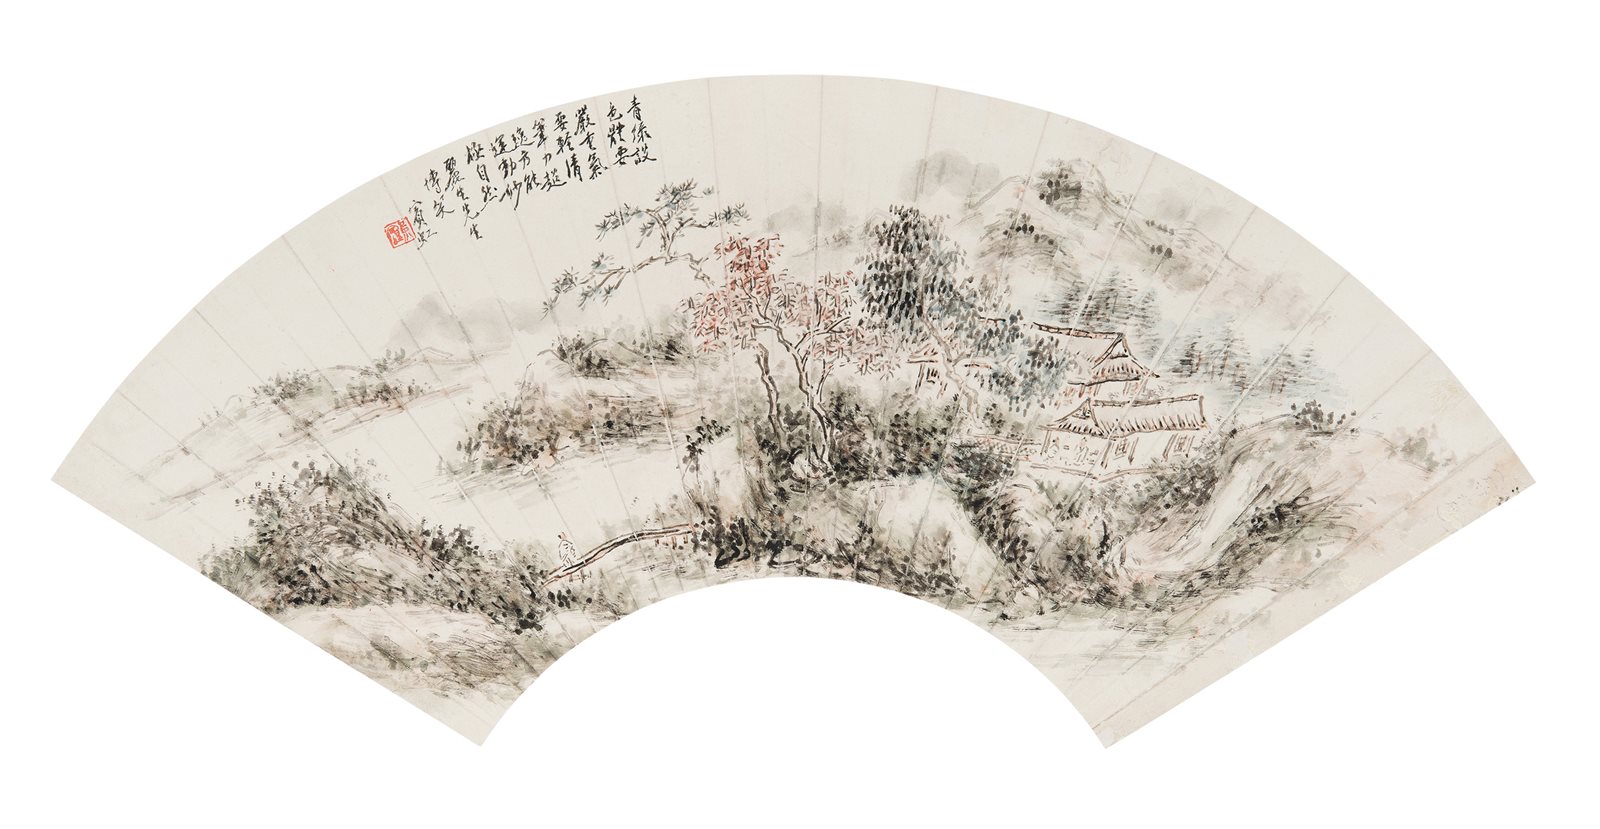 青綠設
色體要
嚴重氣
要輕清
筆力超
逸方能
運動妙
極自然
麗生先生
博笑
賓虹